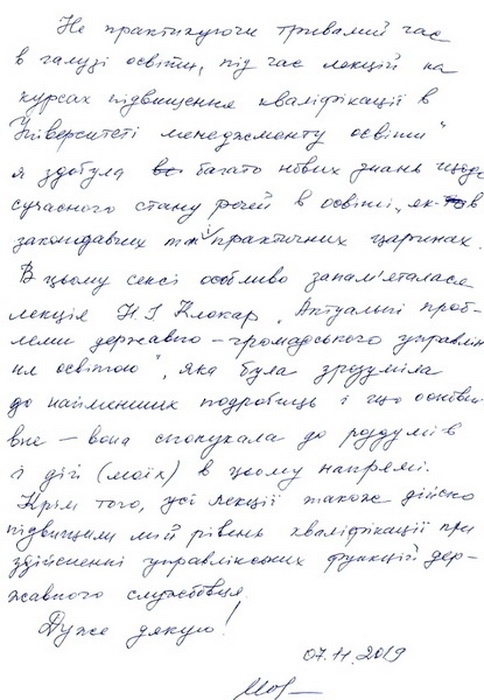 Не практикуючи тривалий час
в галузі освіти, під час лекцій на
курсах підвищення кваліфікації в
Університеті менеджменту освіти"
я здобула багато нових знань щодо
сучасного стану речей в освіті, як в
законодавчих так і практичних царинах.
В цьому сенсі особливо запам'яталася
лекція Н.І Клокар „Актуальні проб-
леми державно-громадського управлін
ня освітою", яка була зрозуміла
до найменших подробиць і що основ
вне – вона спонукала до роздумів
і дій (моїх) в цьому напрямі.
Крім того, усі лекції також дійсно
підвищили мій рівень кваліфікації при
здійсненні управлінських функцій дер-
жавного службовця.
Дуже дякую!
07.11.2019